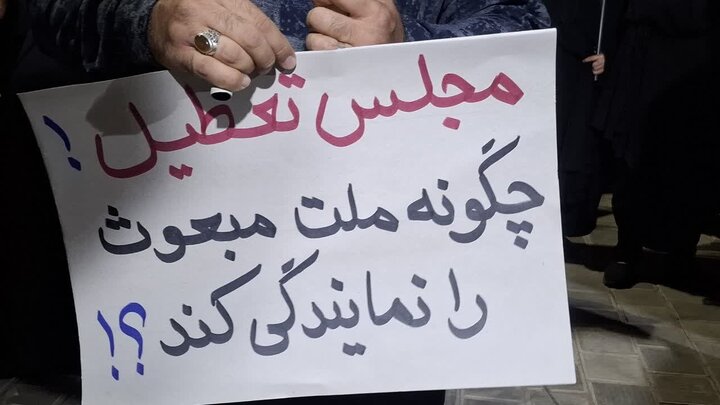 مجلس تعطیل !
چگونه ملت مبعوث
را نمایندگی کند ؟!